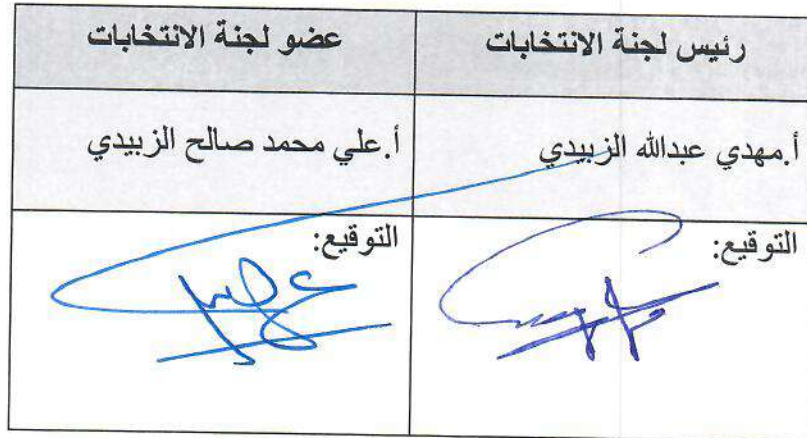 رئيس لجنة الانتخابات
عضو لجنة الانتخابات
أ.مهدي عبدالله الزبيدي
أ.علي محمد صالح الزبيدي
التوقيع:
التوقيع: